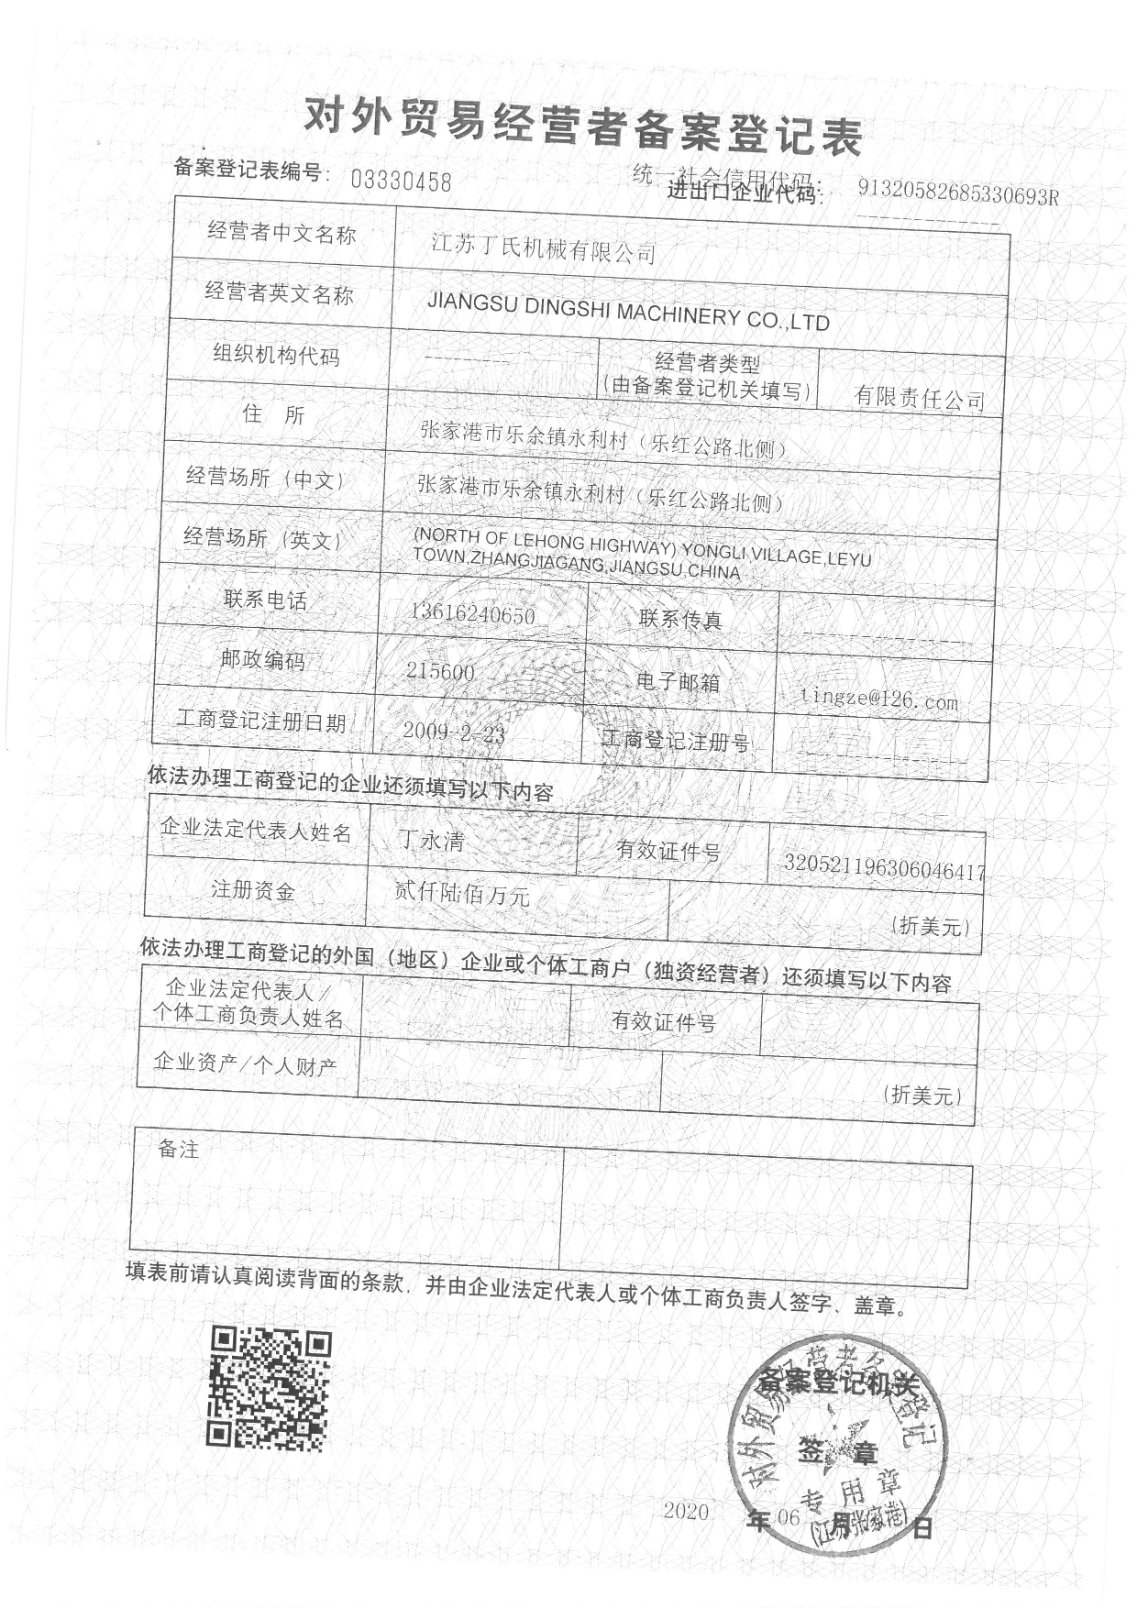 对外贸易经营者备案登记表
备案登记表编号： 03330458
统一社会信用代码： 91320582685330693R
进出口企业代码： -------------
经营者中文名称 江苏丁氏机械有限公司
经营者英文名称 JIANGSU DINGSHI MACHINERY CO.,LTD
组织机构代码 --------- 经营者类型
(由备案登记机关填写) 有限责任公司
住 所 张家港市乐余镇永利村（乐红公路北侧）
经营场所（中文） 张家港市乐余镇永利村（乐红公路北侧）
经营场所（英文） (NORTH OF LEHONG HIGHWAY) YONGLI VILLAGE,LEYU
TOWN,ZHANGJIAGANG,JIANGSU,CHINA
联系电话 13616240650 联系传真 ---------------
邮政编码 215600 电子邮箱 tingze@126.com
工商登记注册日期 2009-2-23 工商登记注册号 ---------------
依法办理工商登记的企业还须填写以下内容
企业法定代表人姓名 丁永清 有效证件号 320521196306046417
注册资金 贰仟陆佰万元 (折美元)
依法办理工商登记的外国（地区）企业或个体工商户（独资经营者）还须填写以下内容
企业法定代表人/
个体工商负责人姓名 有效证件号
企业资产/个人财产 (折美元)
备注
填表前请认真阅读背面的条款，并由企业法定代表人或个体工商负责人签字、盖章。
对外贸易经营者备案登记
备案登记机关
签 章
专用章
(江苏张家港)
2020 年 06 月 日